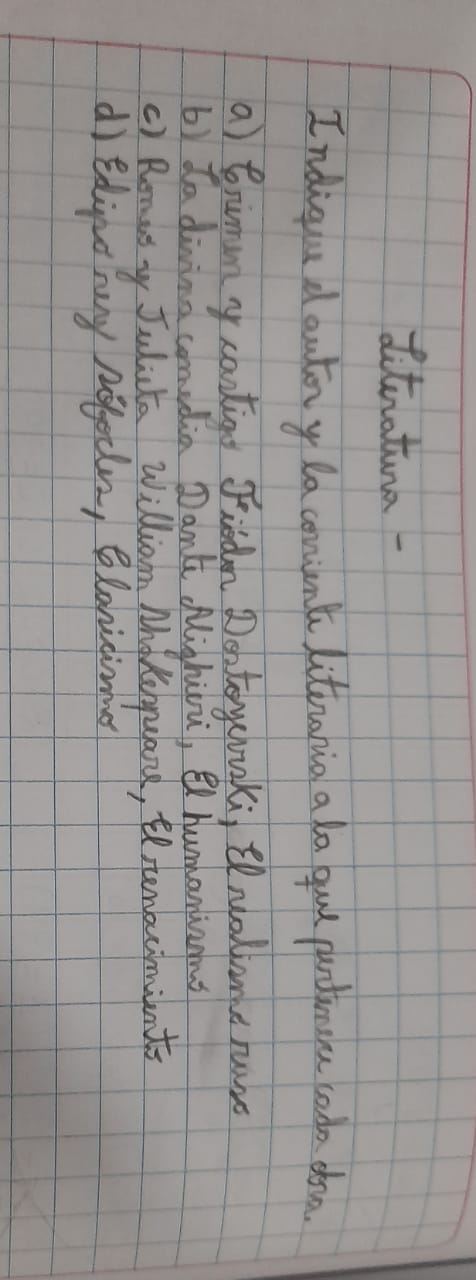 Literatura -
Indique el autor y la corriente literaria a la que pertenece cada obra.
a) Crimen y castigo Fiódor Dostoyevski, El realismo ruso
b) La divina comedia Dante Alighieri, El humanismo
c) Romeo y Julieta William Shakespeare, El renacimiento
d) Edipo rey Sófocles, Clasicismo